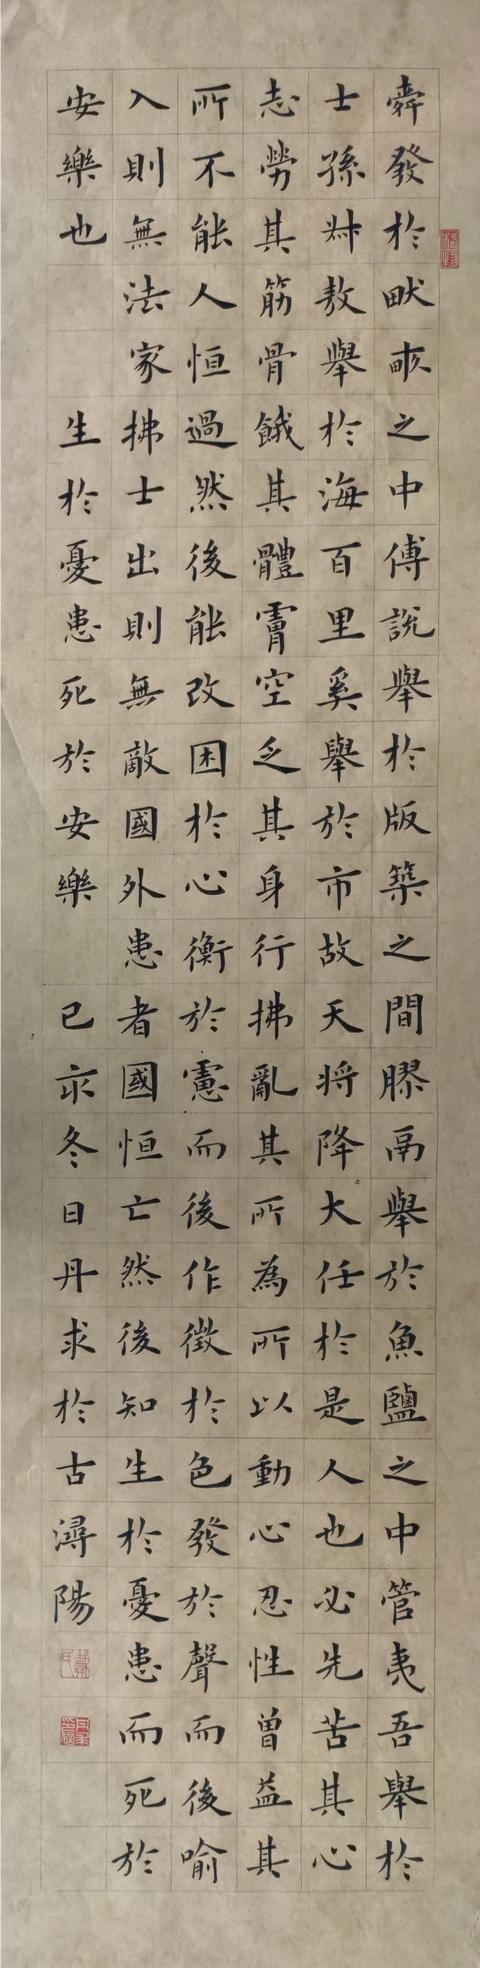 舜發於畎畝之中傅說舉於版築之間膠鬲舉於魚鹽之中管夷吾舉於
士孫叔敖舉於海百里奚舉於市故天將降大任於是人也必先苦其心
志勞其筋骨餓其體膚空乏其身行拂亂其所為所以動心忍性曾益其
所不能人恒過然後能改困於心衡於慮而後作徵於色發於聲而後喻
入則無法家拂士出則無敵國外患者國恒亡然後知生於憂患而死於
安樂也 生於憂患死於安樂 己亥冬日丹求於古潯陽